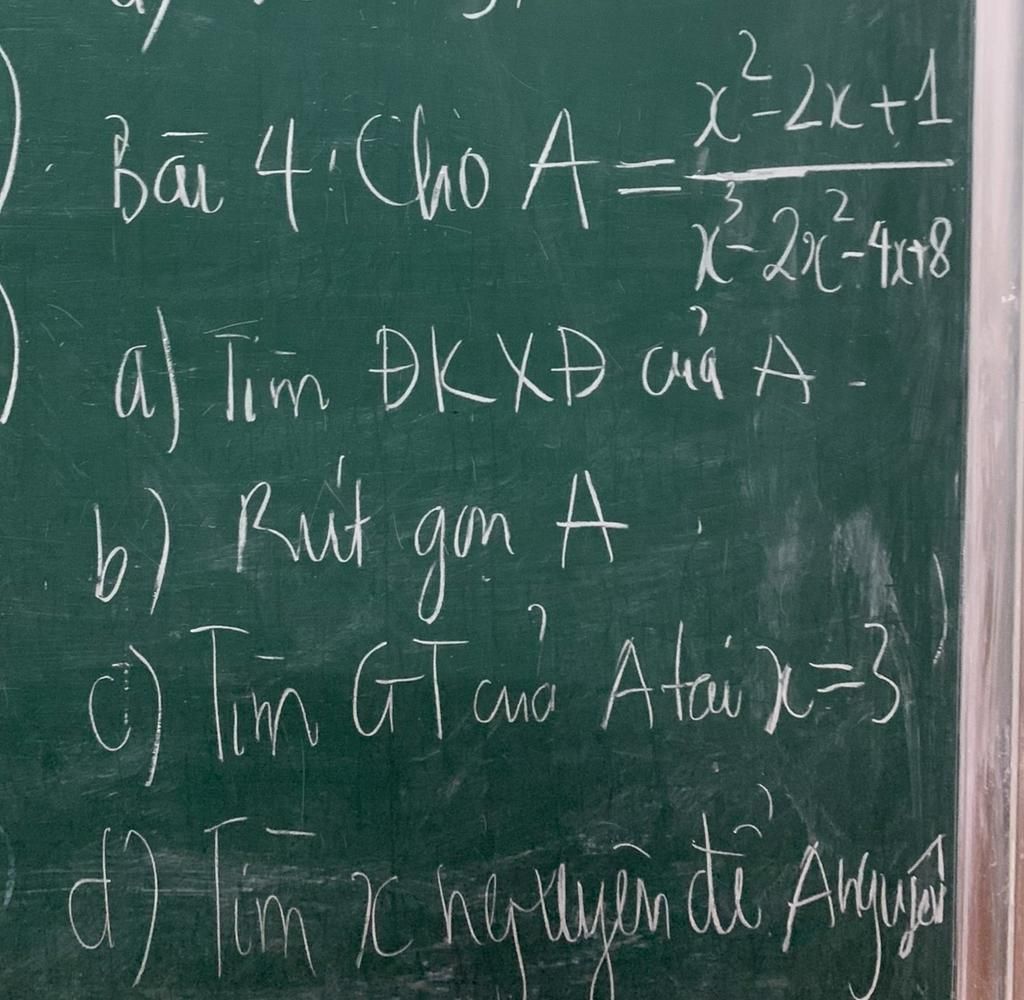 Bài 4: Cho A = x²-2x+1 / x³-2x²-4x+8
a) Tìm ĐKXĐ của A.
b) Rút gọn A
c) Tìm GT của A tại x=3
d) Tìm x nguyên để A nguyên